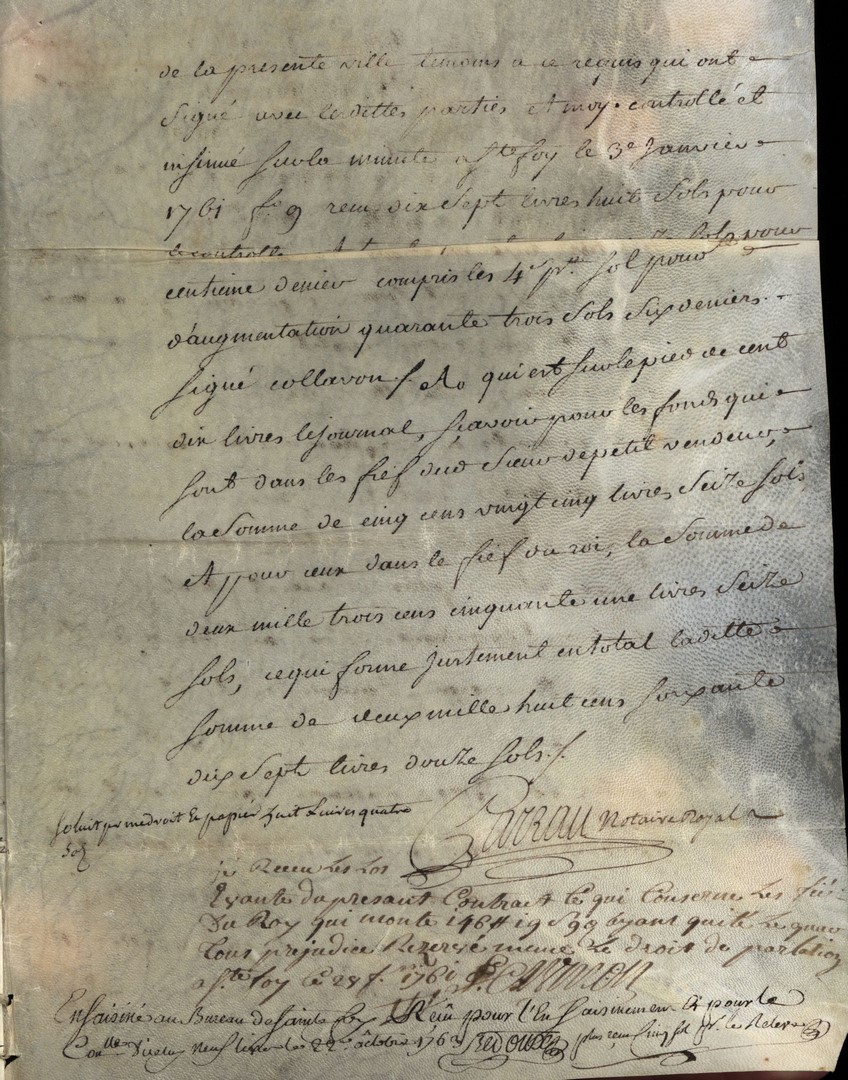 de la presente ville temoins a ce requis qui ont
Signé avec lesdittes parties et moy. controllé et
insinué sur la minute a Ste foy le 3e Janvier
1761 fo 9 reçu dix Sept livres huit Sols pour
le controlle Sols pour
centieme denier compris les 4 Sol pour
d'augmentation quarante trois Sols Six deniers.
Signé collavon /. qui est sur le pied de cent
dix livres le journal, Sçavoir pour les fonds qui
sont dans les fief dud Sieur de petit
la Somme de cinq cens vingt cinq livres Seize Sols
et pour ceux dans le fief du roi, la Somme de
deux mille trois cens cinquante une livres Seize
Sols, ce qui forme justement en total laditte
Somme de deux mille huit cens Soixante
dix Sept livres douze Sols /.
Notaire Royal
droit & papier huit Livres quatre
Sol
je Reçeu Les Los
& vante du presant Contract Ce qui Conserne Les fiés
Du Roy qui monte 146 19 s 9 d
Sans prejudice Rezerve meme Le droit de
a Ste foy Le 28 1761
Ensaisiné au Bureau de Sainte Foy Reçû pour l'Ensaisinement & pour le
neuf livres les 22e octobre 1763 plus reçu Cinq Sol pr. le Relevé